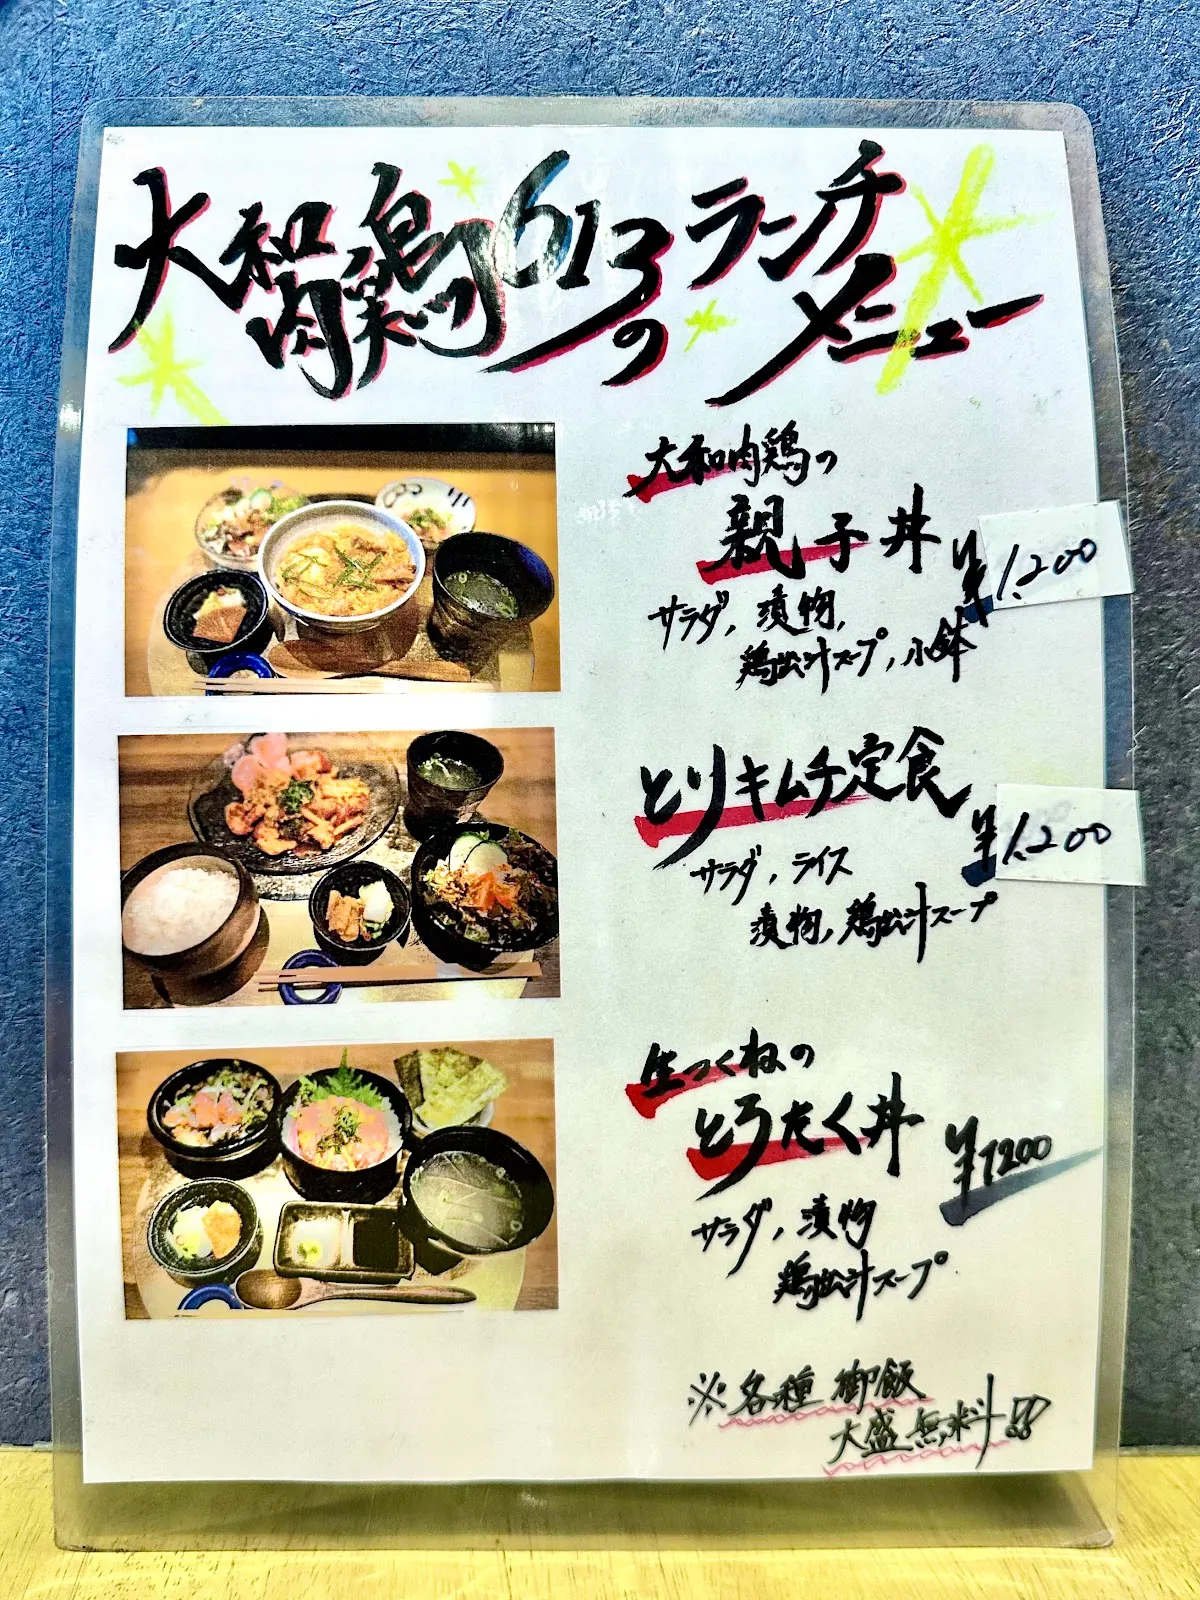 大和肉鶏613のランチメニュー
大和肉鶏の
親子丼 ¥1.200
サラダ、漬物、
鶏出汁スープ、小鉢
とりキムチ定食 ¥1.200
サラダ、ライス
漬物、鶏出汁スープ
生つくねの
とろたく丼 ¥1200
サラダ、漬物
鶏出汁スープ
※各種御飯
大盛無料!!